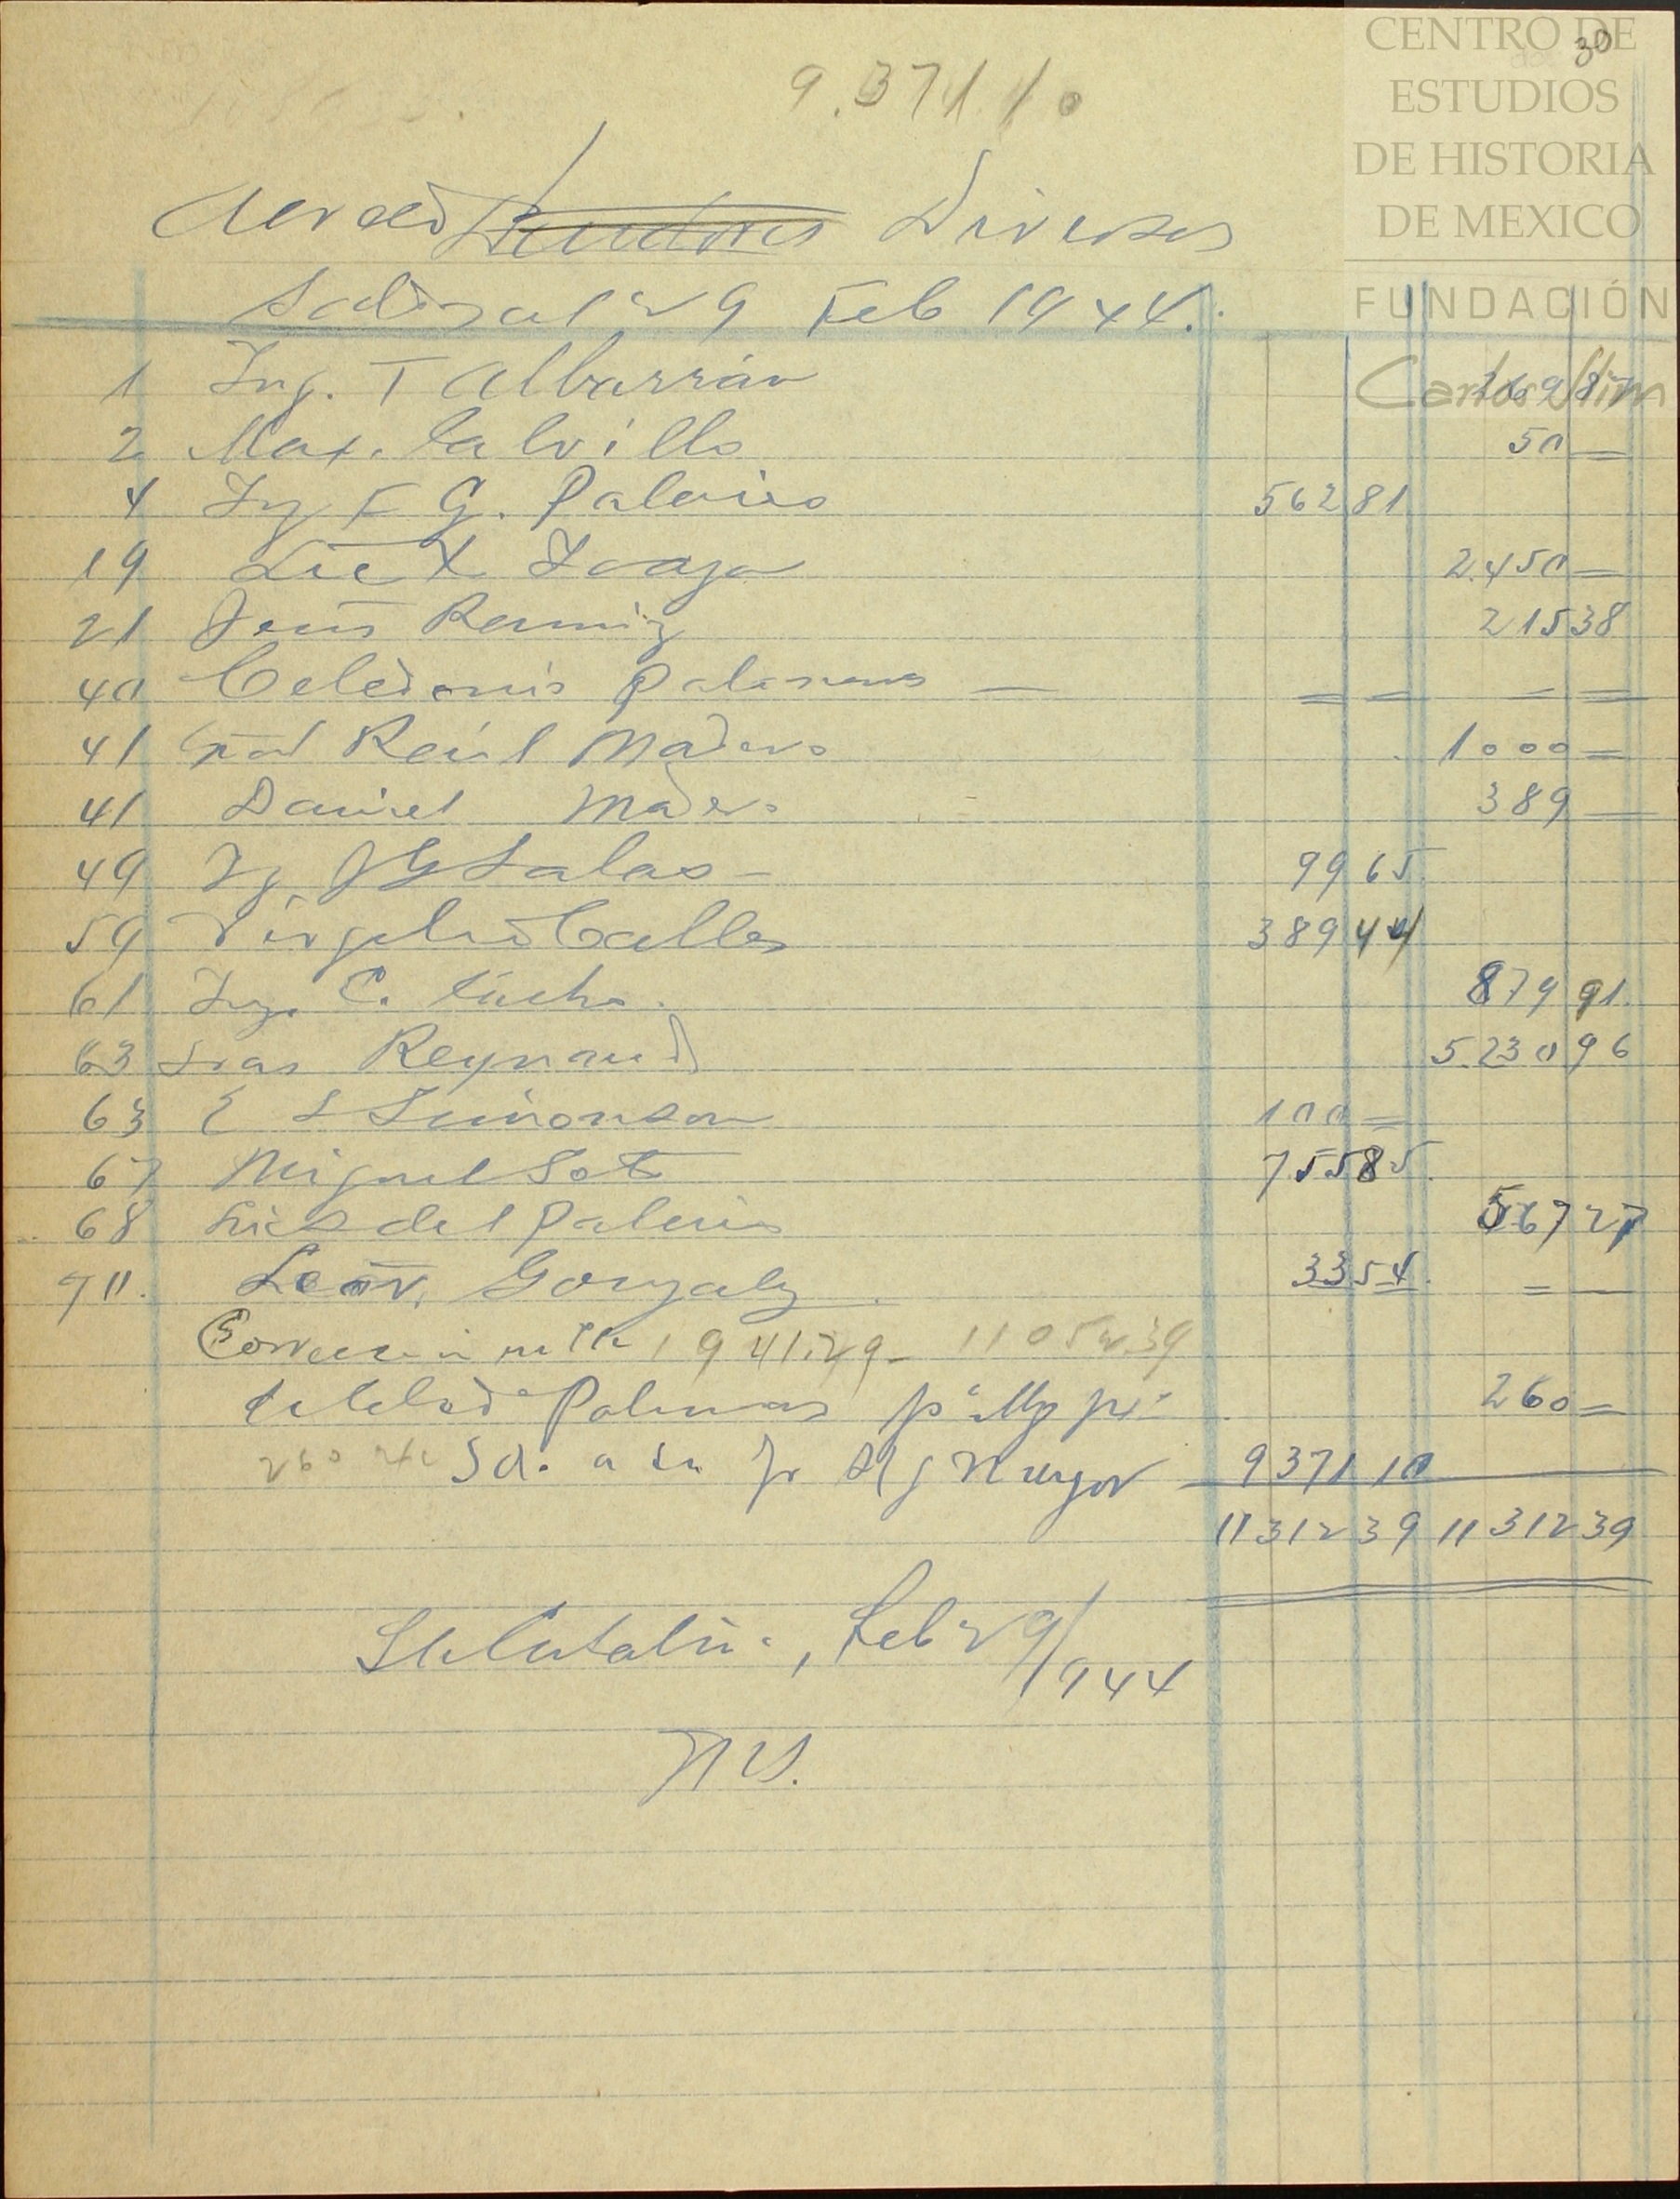 CENTRO DE
ESTUDIOS
DE HISTORIA
DE MEXICO
FUNDACIÓN
Carlos Slim
30
9.371.10
Acreed Deudores Diversos
Saldos al 29 Feb 1944.
1 Ing. T Albarrán 269 87
2 Max. Calvillo 50 =
4 Ing F G. Palacios 562 81
19 Lic 2.450 =
21 Jesús Ramirez 215 38
40 Celedonio Palomares — = = = =
41 Gral Raúl Madero 1000 =
41 Daniel Madero 389 =
49 Ig. J G Salas - 99 65
59 Virgilio Calles 389 44
61 Ing. C. 879 91
63 Sras Reynaud 5.230 96
63 E S Simonson 100 =
67 Miguel Soto 755 85
68 Luis del Palacio 567 27
70. Leonv. Gonzalez 33 54 = —
1941.29 - 11052.39
Celed° Palomares 260 =
260 Sd. Mayor 9371 10
11312 39 11312 39
Sta Catalina, Feb 29/944